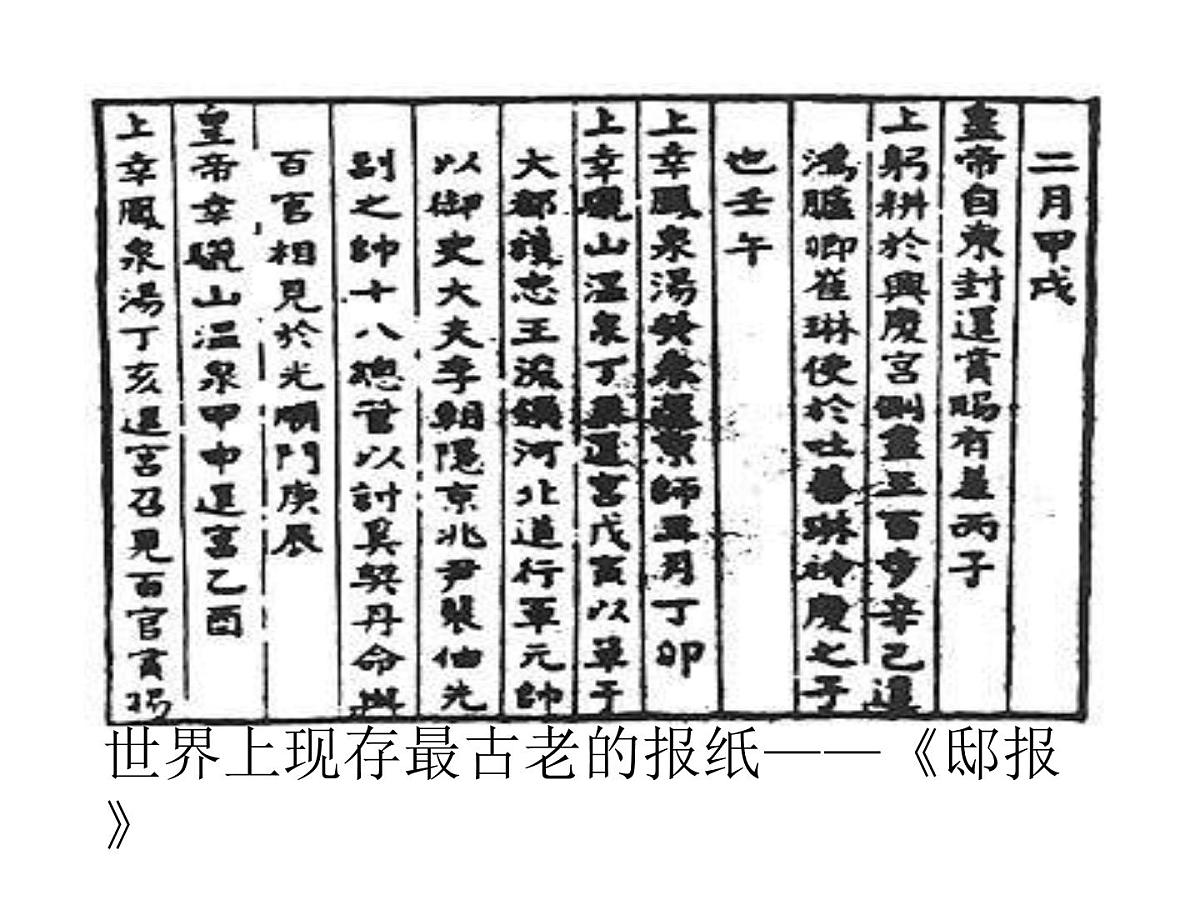 二月甲戌
皇帝自東封還賞賜有差丙子
上躬耕於興慶宮側盡三百步辛己還
鴻臚卿崔琳使於吐蕃琳神慶之子
也壬午
上幸鳳泉湯癸未還京師五月丁卯
上幸驪山溫泉丁丑還宮戊寅以單于
大都護忠王浚領河北道行軍元帥
以御史大夫李朝隱京兆尹裴伷先
副之帥十八總管以討奚契丹命與
百官相見於光順門庚辰
皇帝幸驪山溫泉甲申還宮乙酉
上幸鳳泉湯丁亥還宮召見百官賞賜
世界上现存最古老的报纸——《邸报
》